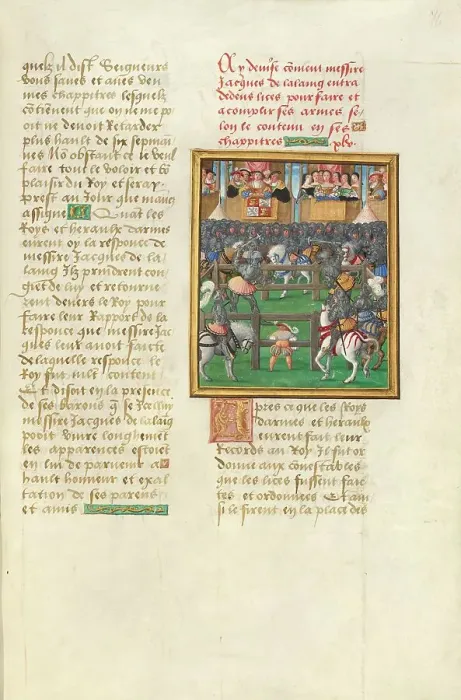 quelz il dist Seigneurs
vous saues et aues veu
mes chappitres lesquelz
côtiennent que on ne me po
oit ne deuoit Retarder
plus hault de six sepmai
nes Non obstant ce Je veul
faire tout le voloir et bô
plaisir du Roy et seray
prest au Jour que maues
assigne Quât les
Roys et heraulx darmes
eurent oy la responce de
messire Jacques de la
laing Ilz prindrent con
giet de luy et retourne
rent deuers le Roy pour
faire leur Rapport de la
responce que messire Jac
ques leur auoit faicte
de laquelle responce le
Roy fut content
Et disoit en la presence
de ses barons q se Icelluy
messire Jacques de lalaing
pooit viure longhement
les apparences estoiêt
en lui de paruenir a
hault honneur et exal
tation de ses parens
et amis
Cy deuise cômêt messire
Jacques de lalaing entra
dedens lices pour faire et
acomplir ses armes se
lon le contenu en ses
chappitres
Apres ce que les Roys
darmes et heraulx
eurent fait leur
Records au Roy Il fut or
donne aux conestables
que les lices fussent fai
tes et ordonnees Et ain
si le firent en la place des